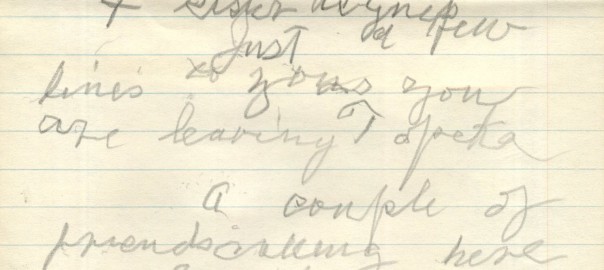 + sister Agnes
Just a few
lines to you you
are leaving Topeka
a couple of
friends calling here